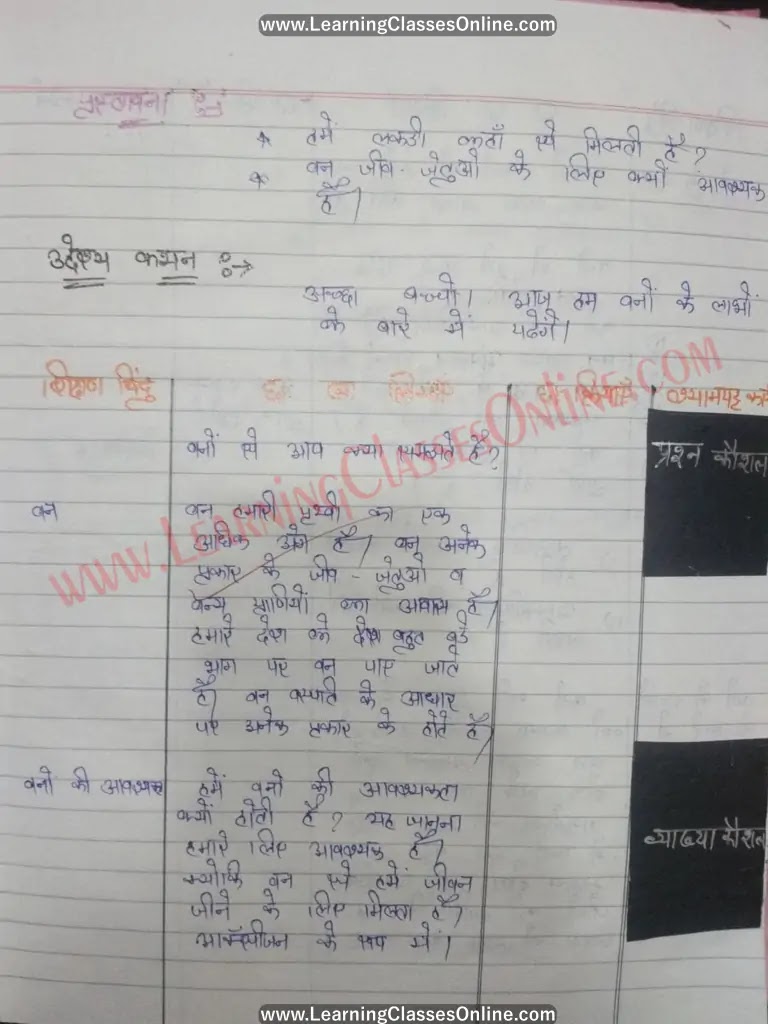 www.LearningClassesOnline.com
प्रस्तावना
* हमें लकडी कहाँ से मिलती है?
* वन जीव-जंतुओ के लिए क्यों आवश्यक
है।
उद्देश्य कथन :→
अच्छा बच्चो। आज हम वनों के लाभों
के बारे में पढेंगे।
शिक्षण बिंदु
श्यामपट्ट
वनों से आप क्या समझते है?
प्रश्न कौशल
वन
वन हमारी पृथ्वी का एक
अधिक अंग है। वन अनेक
प्रकार के जीव-जंतुओ व
वन्य प्राणियों का आवास है।
हमारे देश के देश बहुत बडे
भाग पर वन पाए जाते
है। वन वस्पति के आधार
पर अनेक प्रकार के होते है।
वनो की आवश्यक
हमें वनो की आवश्यकता
क्यों होती है? यह जानना
हमारे लिए आवश्यक है।
क्योकि वन से हमें जीवन
जीने के लिए मिलता है।
आक्सीजन के रूप में।
व्याख्या कौशल
www.LearningClassesOnline.com
www.LearningClassesOnline.com